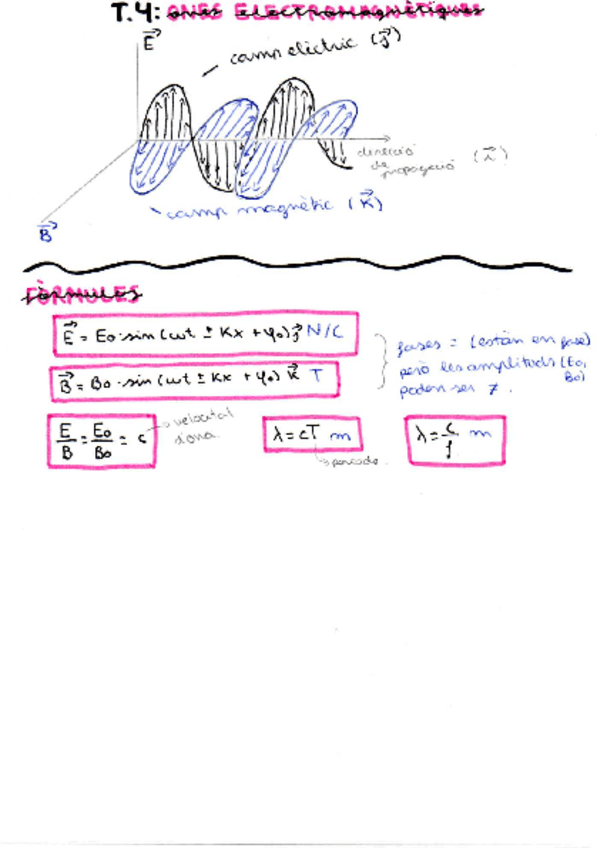 T.4: ones ELECTROMAGNÈTIQUES
E
camp elèctric (j)
direcció de propagació (i)
camp magnètic (K)
B
FÒRMULES
E = Eo·sin(ωt ± Kx + φo) j N/C
B = Bo·sin(ωt ± Kx + φo) K T
fases = (estàn en fase)
però les amplituds (Eo, Bo)
poden ser ≠.
E/B = Eo/Bo = c → velocitat d'ona.
λ = cT m
→ període.
λ = c/f m